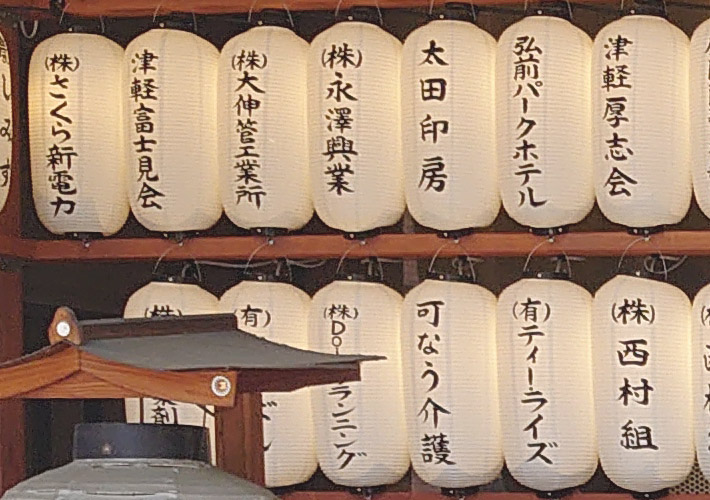 (株)さくら新電力
津軽富士見会
(株)大伸管工業所
(株)永澤興業
太田印房
弘前パークホテル
津軽厚志会
(株)
(有)
(株)Doi
ランニング
可なう介護
(有)ティーライズ
(株)西村組